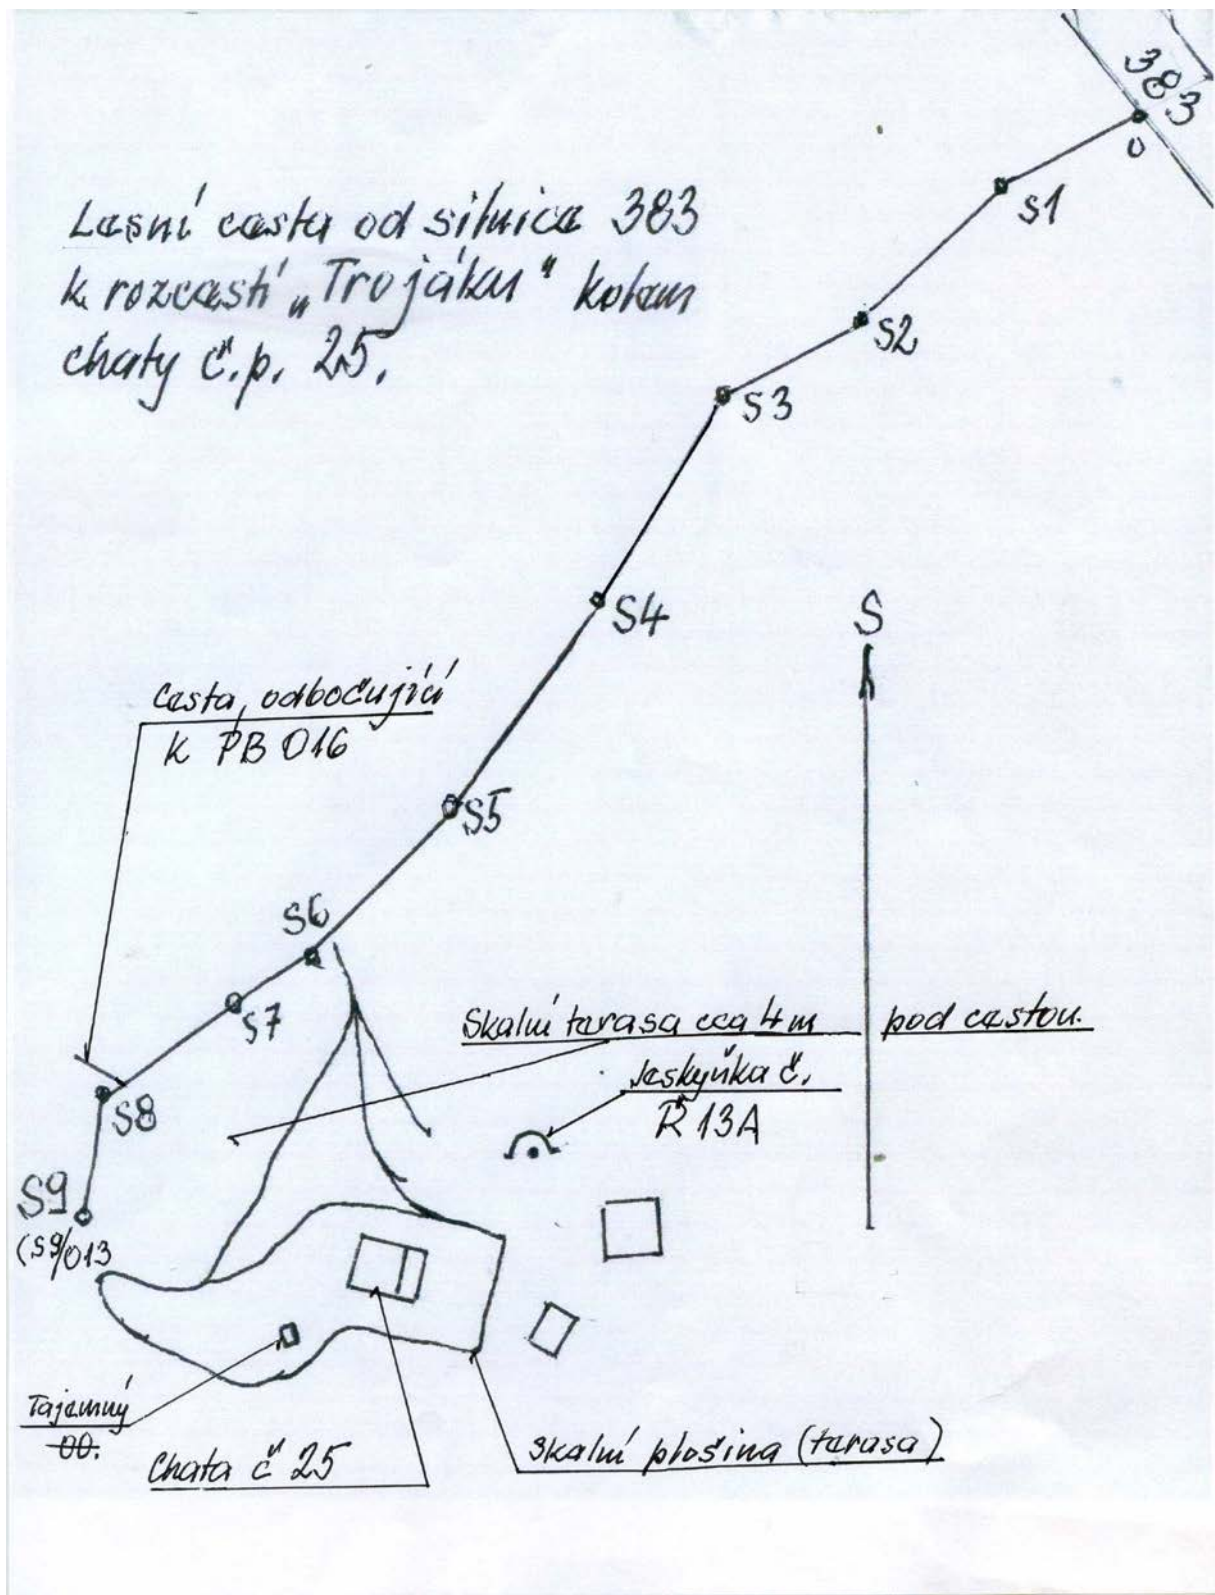 Lesní cesta od silnice 383
k rozcestí „Trojáku" kolem
chaty č.p. 25.
383
0
S1
S2
S3
S4
S
Cesta, odbočující
k PB 016
S5
S6
S7
Skalní terasa cca 4m pod cestou.
Jeskyňka č.
Ř 13A
S8
S9
(S9/013
Tajemný
00.
Chata č 25
Skalní plošina (terasa)